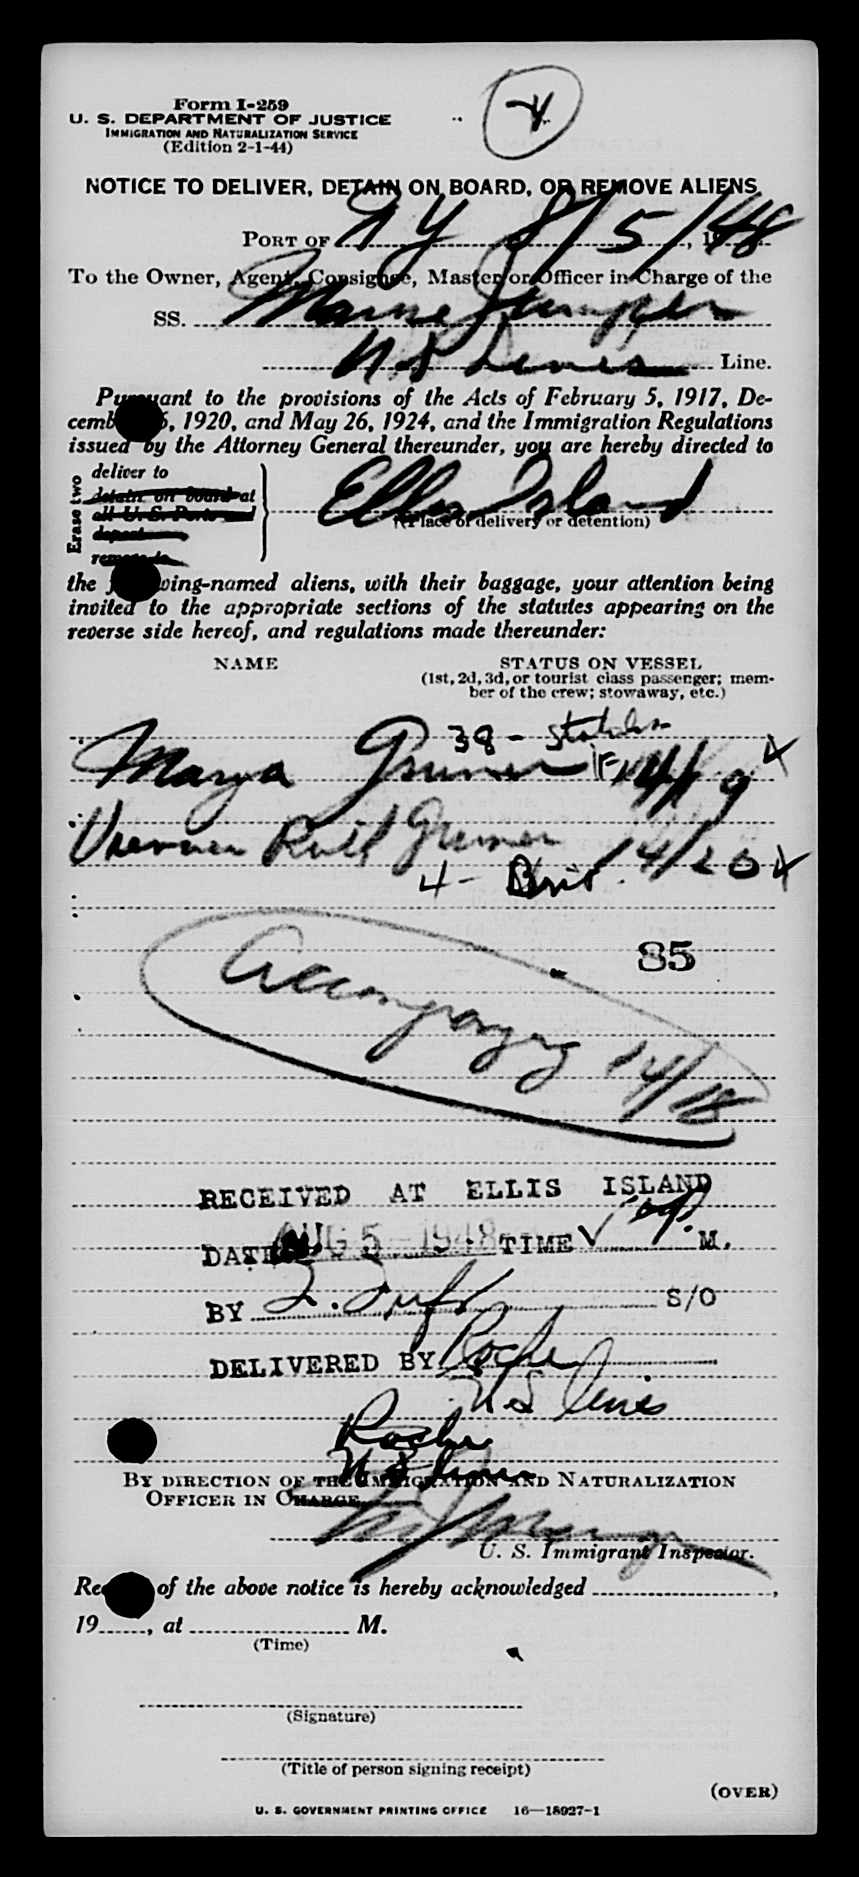 Form I-259
U. S. DEPARTMENT OF JUSTICE
IMMIGRATION AND NATURALIZATION SERVICE
(Edition 2-1-44)
4
NOTICE TO DELIVER, DETAIN ON BOARD, OR REMOVE ALIENS
PORT OF N Y 8/5/48, 19
To the Owner, Agent, Consignee, Master or Officer in Charge of the
SS. Marine Jumper
U.S. Lines Line.
Pursuant to the provisions of the Acts of February 5, 1917, De-
cember 26, 1920, and May 26, 1924, and the Immigration Regulations
issued by the Attorney General thereunder, you are hereby directed to
Erase two
deliver to
detain on board at
all U. S. Ports and
deport
remove to
Ellis Island
(Place of delivery or detention)
the following-named aliens, with their baggage, your attention being
invited to the appropriate sections of the statutes appearing on the
reverse side hereof, and regulations made thereunder:
NAME STATUS ON VESSEL
(1st, 2d, 3d, or tourist class passenger; mem-
ber of the crew; stowaway, etc.)
38 - Stateless
Marya Gruner 14/19 4
Ruth Gruner 14/20 4
4 - Brit.
85
Accompanying 14/18
RECEIVED AT ELLIS ISLAND
DATE AUG 5 - 1948 TIME M.
BY S/O
DELIVERED BY Roche
U S Lines
Roche
U S Lines
BY DIRECTION OF THE IMMIGRATION AND NATURALIZATION
OFFICER IN CHARGE
U. S. Immigrant Inspector.
Receipt of the above notice is hereby acknowledged ,
19 , at M.
(Time)
(Signature)
(Title of person signing receipt)
(OVER)
U. S. GOVERNMENT PRINTING OFFICE 16—18927-1